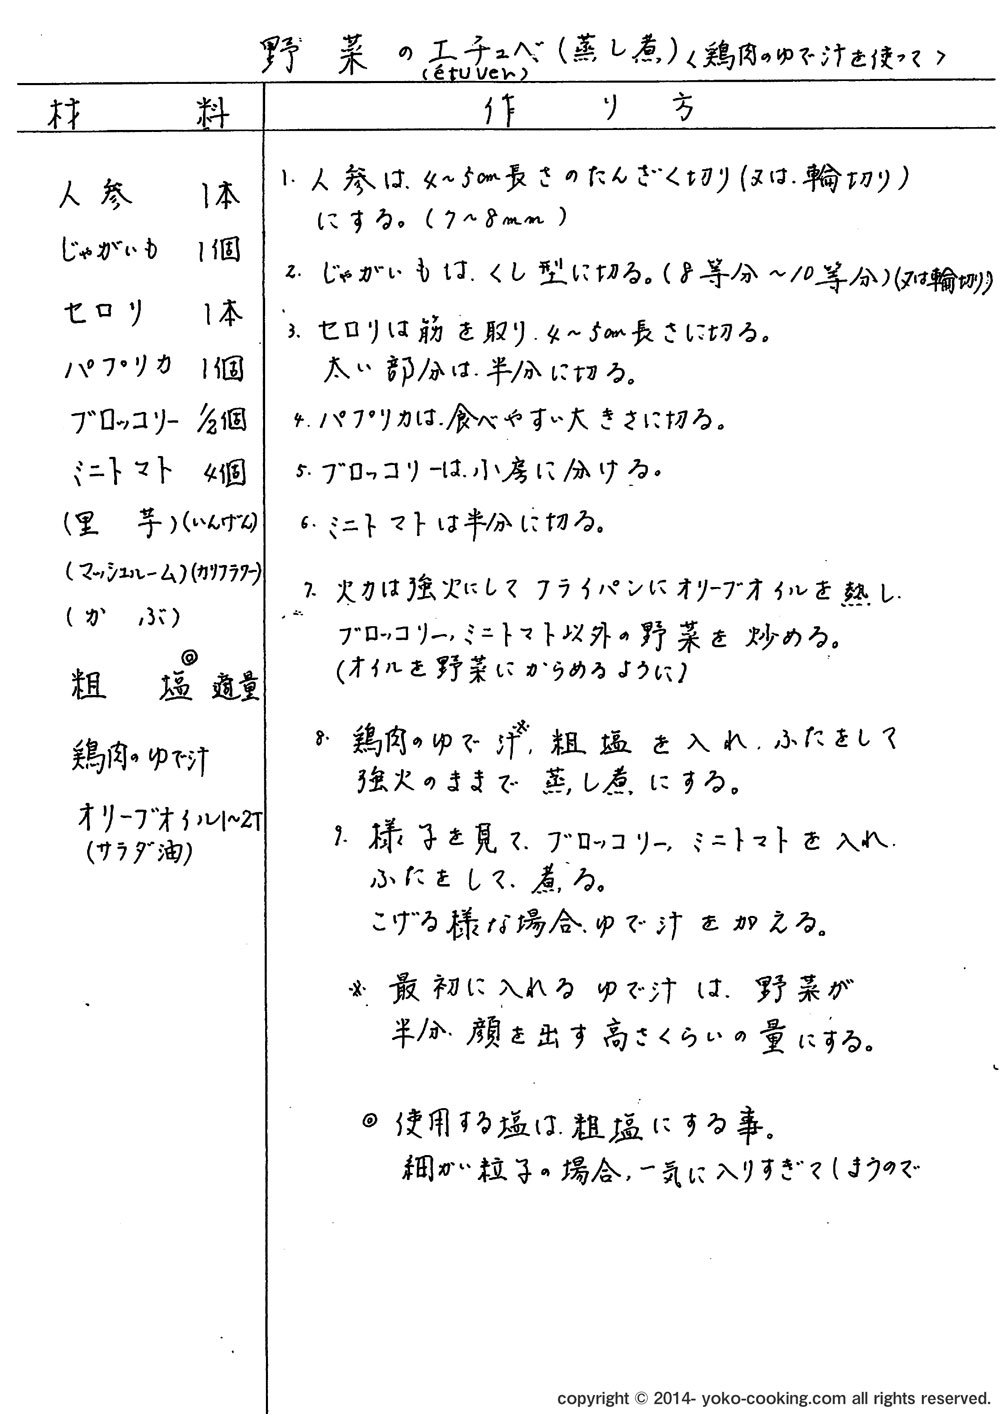 野菜のエチュベ(蒸し煮)<鶏肉のゆで汁を使って>
(étuver)
材料
作り方
人参 1本
じゃがいも 1個
セロリ 1本
パプリカ 1個
ブロッコリー 1/2個
ミニトマト 4個
(里芋)(いんげん)
(マッシュルーム)(カリフラワー)
(かぶ)
◎
粗塩 適量
鶏肉のゆで汁
オリーブオイル1~2T
(サラダ油)
1. 人参は、4~5cm長さのたんざく切り(又は、輪切り)
にする。(7~8mm)
2. じゃがいもは、くし型に切る。(8等分~10等分)(又は輪切り)
3. セロリは筋を取り、4~5cm長さに切る。
太い部分は、半分に切る。
4. パプリカは、食べやすい大きさに切る。
5. ブロッコリーは、小房に分ける。
6. ミニトマトは半分に切る。
7. 火力は強火にしてフライパンにオリーブオイルを熱し、
ブロッコリー、ミニトマト以外の野菜を炒める。
(オイルを野菜にからめるように)
8. 鶏肉のゆで汁※、粗塩を入れ、ふたをして
強火のままで蒸し煮にする。
9. 様子を見て、ブロッコリー、ミニトマトを入れ、
ふたをして、煮る。
こげる様な場合、ゆで汁を加える。
※ 最初に入れるゆで汁は、野菜が
半分、顔を出す高さくらいの量にする。
◎ 使用する塩は、粗塩にする事。
細かい粒子の場合、一気に入りすぎてしまうので
copyright © 2014- yoko-cooking.com all rights reserved.